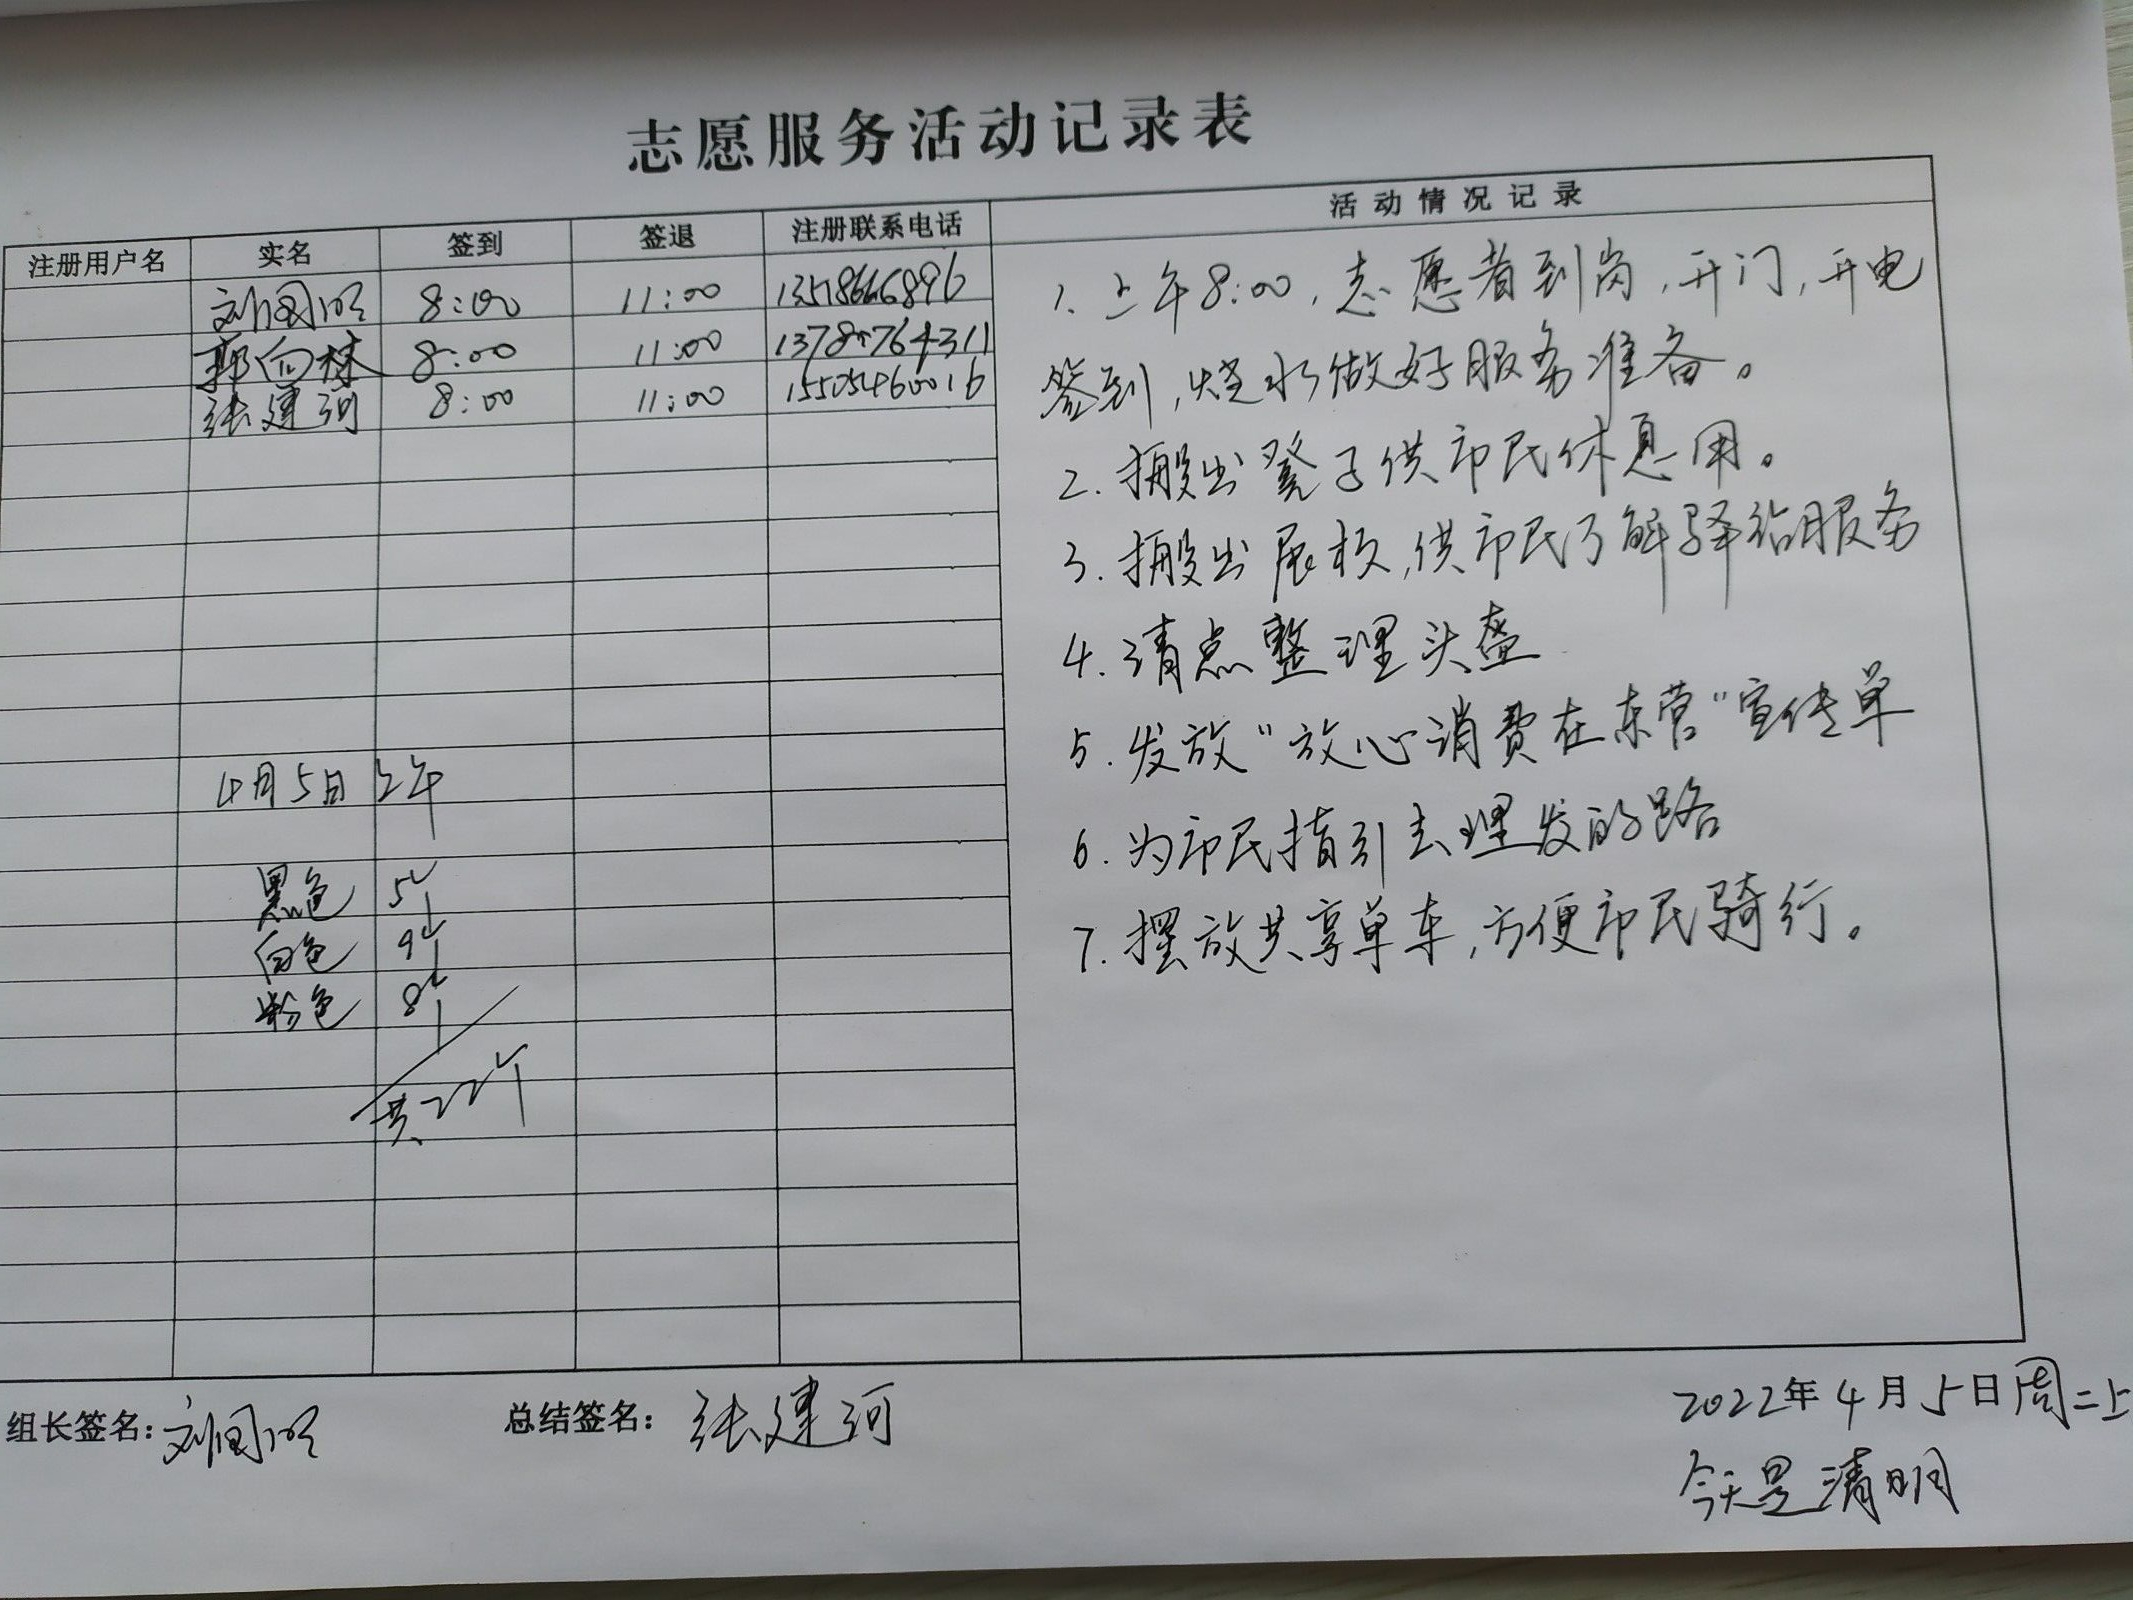 志愿服务活动记录表
注册用户名 实名 签到 签退 注册联系电话 活动情况记录
刘国明 8:00 11:00 13518666896
郭向林 8:00 11:00
张建河 8:00 11:00 15505460016
4月5日上午
黑色 5个
白色 9个
粉色 8个
共22个
1. 上午8:00,志愿者到岗,开门,开电
签到,烧水做好服务准备。
2. 搬出凳子供市民休息用。
3. 搬出展板,供市民了解驿站服务
4. 清点整理头盔
5. 发放"放心消费在东营"宣传单
6. 为市民指引去理发的路
7. 摆放共享单车,方便市民骑行。
组长签名:刘国明 总结签名:张建河 2022年4月5日周二上
今天是清明